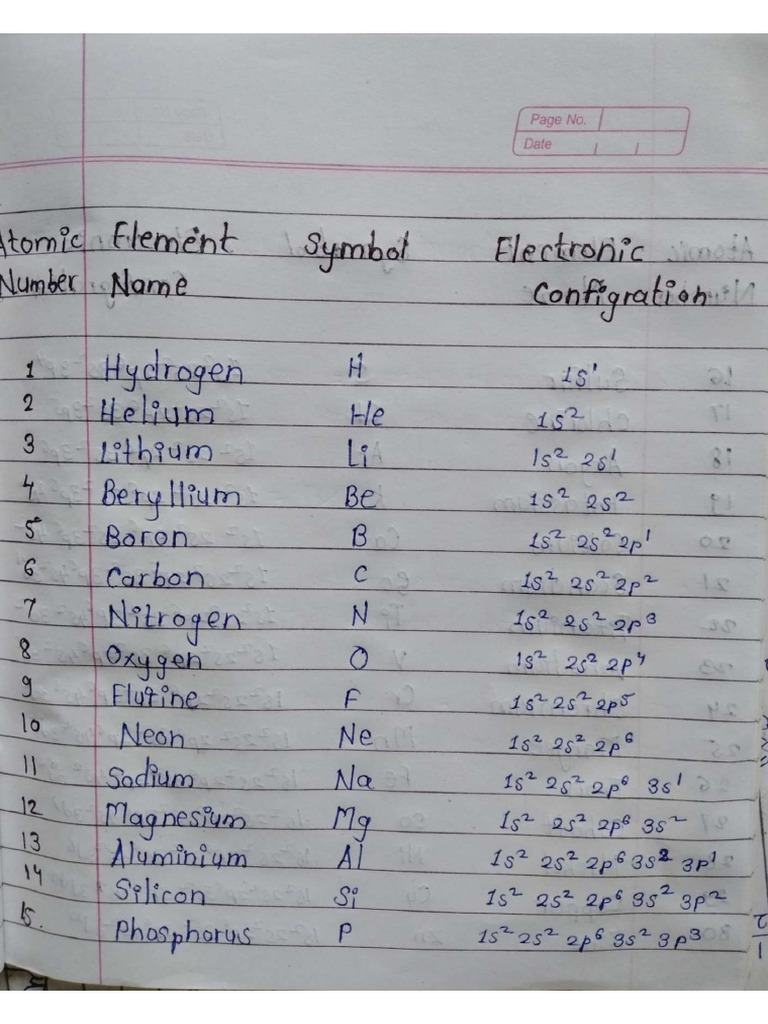 Page No.
Date
Atomic Element Symbol Electronic
Number Name Configration
1 Hydrogen H 1s¹
2 Helium He 1s²
3 Lithium Li 1s² 2s¹
4 Beryllium Be 1s² 2s²
5 Boron B 1s² 2s² 2p¹
6 Carbon C 1s² 2s² 2p²
7 Nitrogen N 1s² 2s² 2p³
8 Oxygen O 1s² 2s² 2p⁴
9 Flurine F 1s² 2s² 2p⁵
10 Neon Ne 1s² 2s² 2p⁶
11 Sodium Na 1s² 2s² 2p⁶ 3s¹
12 Magnesium Mg 1s² 2s² 2p⁶ 3s²
13 Aluminium Al 1s² 2s² 2p⁶ 3s² 3p¹
14 Silicon Si 1s² 2s² 2p⁶ 3s² 3p²
15. Phosphorus P 1s² 2s² 2p⁶ 3s² 3p³